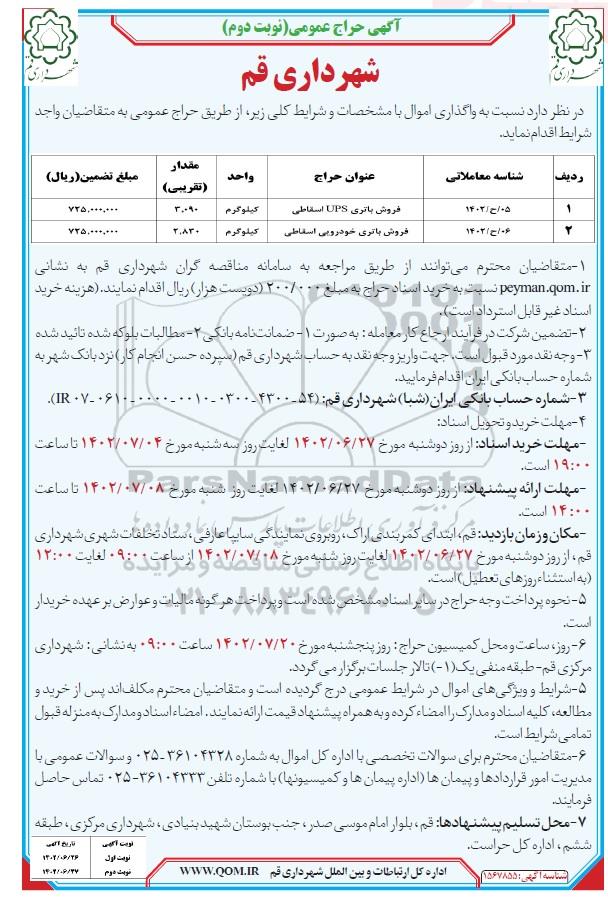 آگهی حراج عمومی(نوبت دوم)
شهرداری قم
شهرداری قم
شهرداری قم
در نظر دارد نسبت به واگذاری اموال با مشخصات و شرایط کلی زیر، از طریق حراج عمومی به متقاضیان واجد
شرایط اقدام نماید.
ردیف شناسه معاملاتی عنوان حراج واحد مقدار (تقریبی) مبلغ تضمین(ریال)
۱ ۰۵/ح/۱۴۰۲ فروش باتری UPS اسقاطی کیلوگرم ۳.۰۹۰ ۷۲۵.۰۰۰.۰۰۰
۲ ۰۶/ح/۱۴۰۲ فروش باتری خودرویی اسقاطی کیلوگرم ۲.۸۳۰ ۷۲۵.۰۰۰.۰۰۰
۱-متقاضیان محترم می‌توانند از طریق مراجعه به سامانه مناقصه گران شهرداری قم به نشانی
peyman.qom.ir نسبت به خرید اسناد حراج به مبلغ ۲۰۰/۰۰۰ (دویست هزار) ریال اقدام نمایند.(هزینه خرید
اسناد غیر قابل استرداد است).
۲-تضمین شرکت در فرآیند ارجاع کار معامله : به صورت ۱- ضمانت‌نامه بانکی ۲- مطالبات بلوکه شده تائید شده
۳- وجه نقد مورد قبول است. جهت واریز وجه نقد به حساب شهرداری قم (سپرده حسن انجام کار) نزد بانک شهر به
شماره حساب بانکی ایران اقدام فرمایید.
۳-شماره حساب بانکی ایران(شبا) شهرداری قم: (۵۴-۴۳۰۰-۰۳۰۰-۰۰۱۰-۰۰۰۰-۰۶۱۰-۰۷ IR).
۴-مهلت خرید و تحویل اسناد:
-مهلت خرید اسناد: از روز دوشنبه مورخ ۱۴۰۲/۰۶/۲۷ لغایت روز سه شنبه مورخ ۱۴۰۲/۰۷/۰۴ تا ساعت
۱۹:۰۰ است.
-مهلت ارائه پیشنهاد: از روز دوشنبه مورخ ۱۴۰۲/۰۶/۲۷ لغایت روز شنبه مورخ ۱۴۰۲/۰۷/۰۸ تا ساعت
۱۴:۰۰ است.
-مکان و زمان بازدید: قم، ابتدای کمربندی اراک، روبروی نمایندگی سایپا عارفی، ستاد تخلفات شهری شهرداری
قم ، از روز دوشنبه مورخ ۱۴۰۲/۰۶/۲۷ لغایت روز شنبه مورخ ۱۴۰۲/۰۷/۰۸ از ساعت ۰۹:۰۰ لغایت ۱۲:۰۰
(به استثناء روزهای تعطیل) است.
۵- نحوه پرداخت وجه حراج در سایر اسناد مشخص شده است و پرداخت هر گونه مالیات و عوارض بر عهده خریدار
است.
۶-روز، ساعت و محل کمیسیون حراج: روز پنجشنبه مورخ ۱۴۰۲/۰۷/۲۰ ساعت ۰۹:۰۰ به نشانی: شهرداری
مرکزی قم- طبقه منفی یک(۱-) تالار جلسات برگزار می گردد.
۵-شرایط و ویژگی‌های اموال در شرایط عمومی درج گردیده است و متقاضیان محترم مکلف‌اند پس از خرید و
مطالعه، کلیه اسناد و مدارک را امضاء کرده و به همراه پیشنهاد قیمت ارائه نمایند. امضاء اسناد و مدارک به منزله قبول
تمامی شرایط است.
۶-متقاضیان محترم برای سوالات تخصصی با اداره کل اموال به شماره ۳۶۱۰۴۳۲۸-۰۲۵ و سوالات عمومی با
مدیریت امور قراردادها و پیمان ها (اداره پیمان ها و کمیسیونها) با شماره تلفن ۳۶۱۰۴۳۳۳-۰۲۵ تماس حاصل
فرمایند.
۷-محل تسلیم پیشنهادها: قم، بلوار امام موسی صدر ، جنب بوستان شهید بنیادی ، شهرداری مرکزی ، طبقه
ششم ، اداره کل حراست.
نوبت آگهی تاریخ آگهی
نوبت اول ۱۴۰۲/۰۶/۲۶
نوبت دوم ۱۴۰۲/۰۶/۲۷
شناسه آگهی: ۱۵۶۷۸۵۵
اداره کل ارتباطات و بین الملل شهرداری قم WWW.QOM.IR
ParsNamadData
پایگاه اطلاع رسانی مناقصه و مزایده
۰۲۱-۸۸۳۴۹۶۷۰-۵